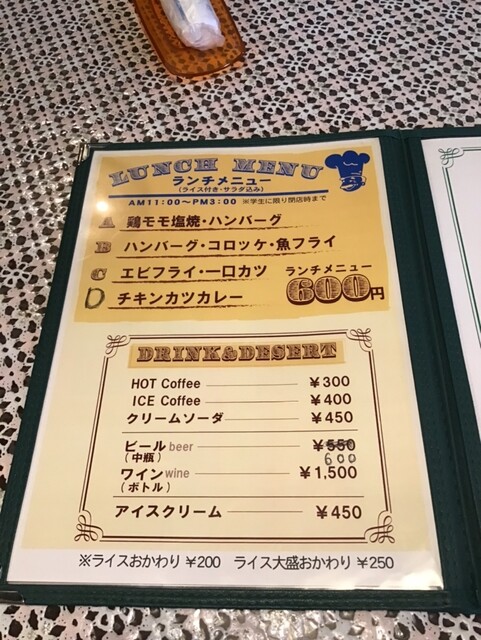 LUNCH MENU
ランチメニュー
(ライス付き・サラダ込み)
AM11:00～PM3:00 ※学生に限り閉店時まで
A 鶏モモ塩焼・ハンバーグ
B ハンバーグ・コロッケ・魚フライ
C エビフライ・一口カツ
D チキンカツカレー
ランチメニュー
600円
DRINK&DESERT
HOT Coffee ¥300
ICE Coffee ¥400
クリームソーダ ¥450
ビール beer ¥550
(中瓶) 600
ワイン wine ¥1,500
(ボトル)
アイスクリーム ¥450
※ライスおかわり ¥200 ライス大盛おかわり ¥250